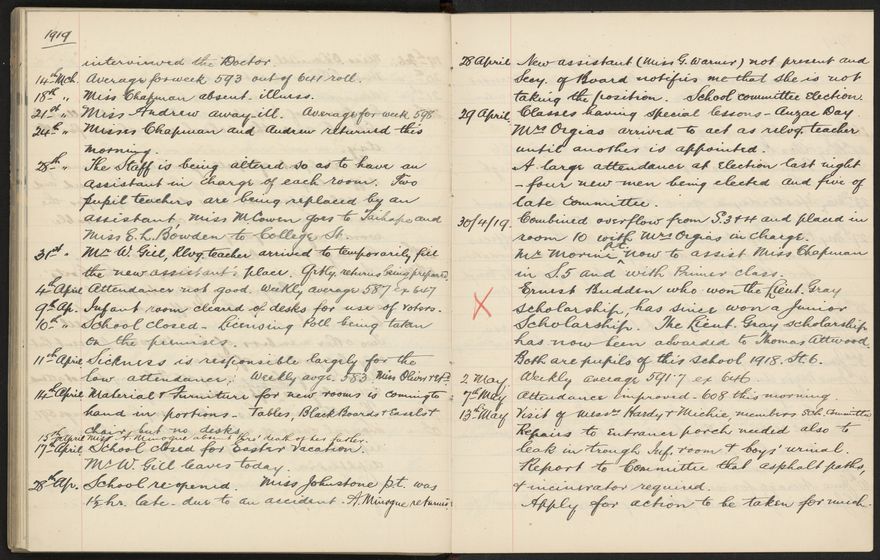 1919
interviewed the Doctor.
14th Mch. Average for week 593 out of 641 roll.
18th " Miss Chapman absent. illness.
21st " Miss Andrew away - ill. Average for week 598
24th " Misses Chapman and Andrew returned this
morning.
28th " The Staff is being altered so as to have an
assistant in charge of each room. Two
pupil teachers are being replaced by an
assistant. Miss M. Cowen goes to Taihape and
Miss E. L. Bowden to College St.
31st " Mr W. Gill, Rlvg. teacher arrived to temporarily fill
the new assistant's place. Qrtly. returns being prepared.
4th April Attendance not good. Weekly average 587 ex 647
9th Ap. Infant room cleared of desks for use of voters.
10th " School closed - Licensing Poll being taken
on the premises.
11th April Sickness is responsible largely for the
low attendance. Weekly avge. 583. Miss Olivers
14th April Material & Furniture for new rooms is coming to
hand in portions - Tables, Black Boards & Easel &
chair, but no desks.
15th April Miss A. Minogue absent thro' death of her father.
17th April School closed for Easter vacation.
Mr W. Gill leaves today.
28th Ap. School re-opened. Miss Johnstone p.t. was
1½ hr. late - due to an accident. A. Minogue returned
28 April New assistant (Miss G. Warner) not present and
Secy. of Board notifies me that she is not
taking the position. School committee Election.
29 April Classes having special lessons - Anzac Day.
Mrs Orgias arrived to act as relvg. teacher
until another is appointed.
A large attendance at Election last night
- four new men being elected and five of
late committee.
30/4/19. Combined overflow from S.3 & 4 and placed in
room 10 with Mrs Orgias in charge.
Mr Morine p.t. now to assist Miss Chapman
in S.5 and with Primer class.
Ernest Budden who won the Lieut. Gray
scholarship, has since won a Junior
Scholarship. The Lieut. Gray scholarship
has now been awarded to Thomas Attwood.
Both are pupils of this school 1918. St. 6.
2 May Weekly average 591.7 ex 646.
7th May Attendance improved - 608 this morning.
13th May Visit of Messrs Hardy & Michie, members Sch. Committee
Repairs to Entrance porch needed also to
leak in trough Inf. room & boys' urinal.
Report to Committee that asphalt paths,
& incinerator required.
Apply for action to be taken for much